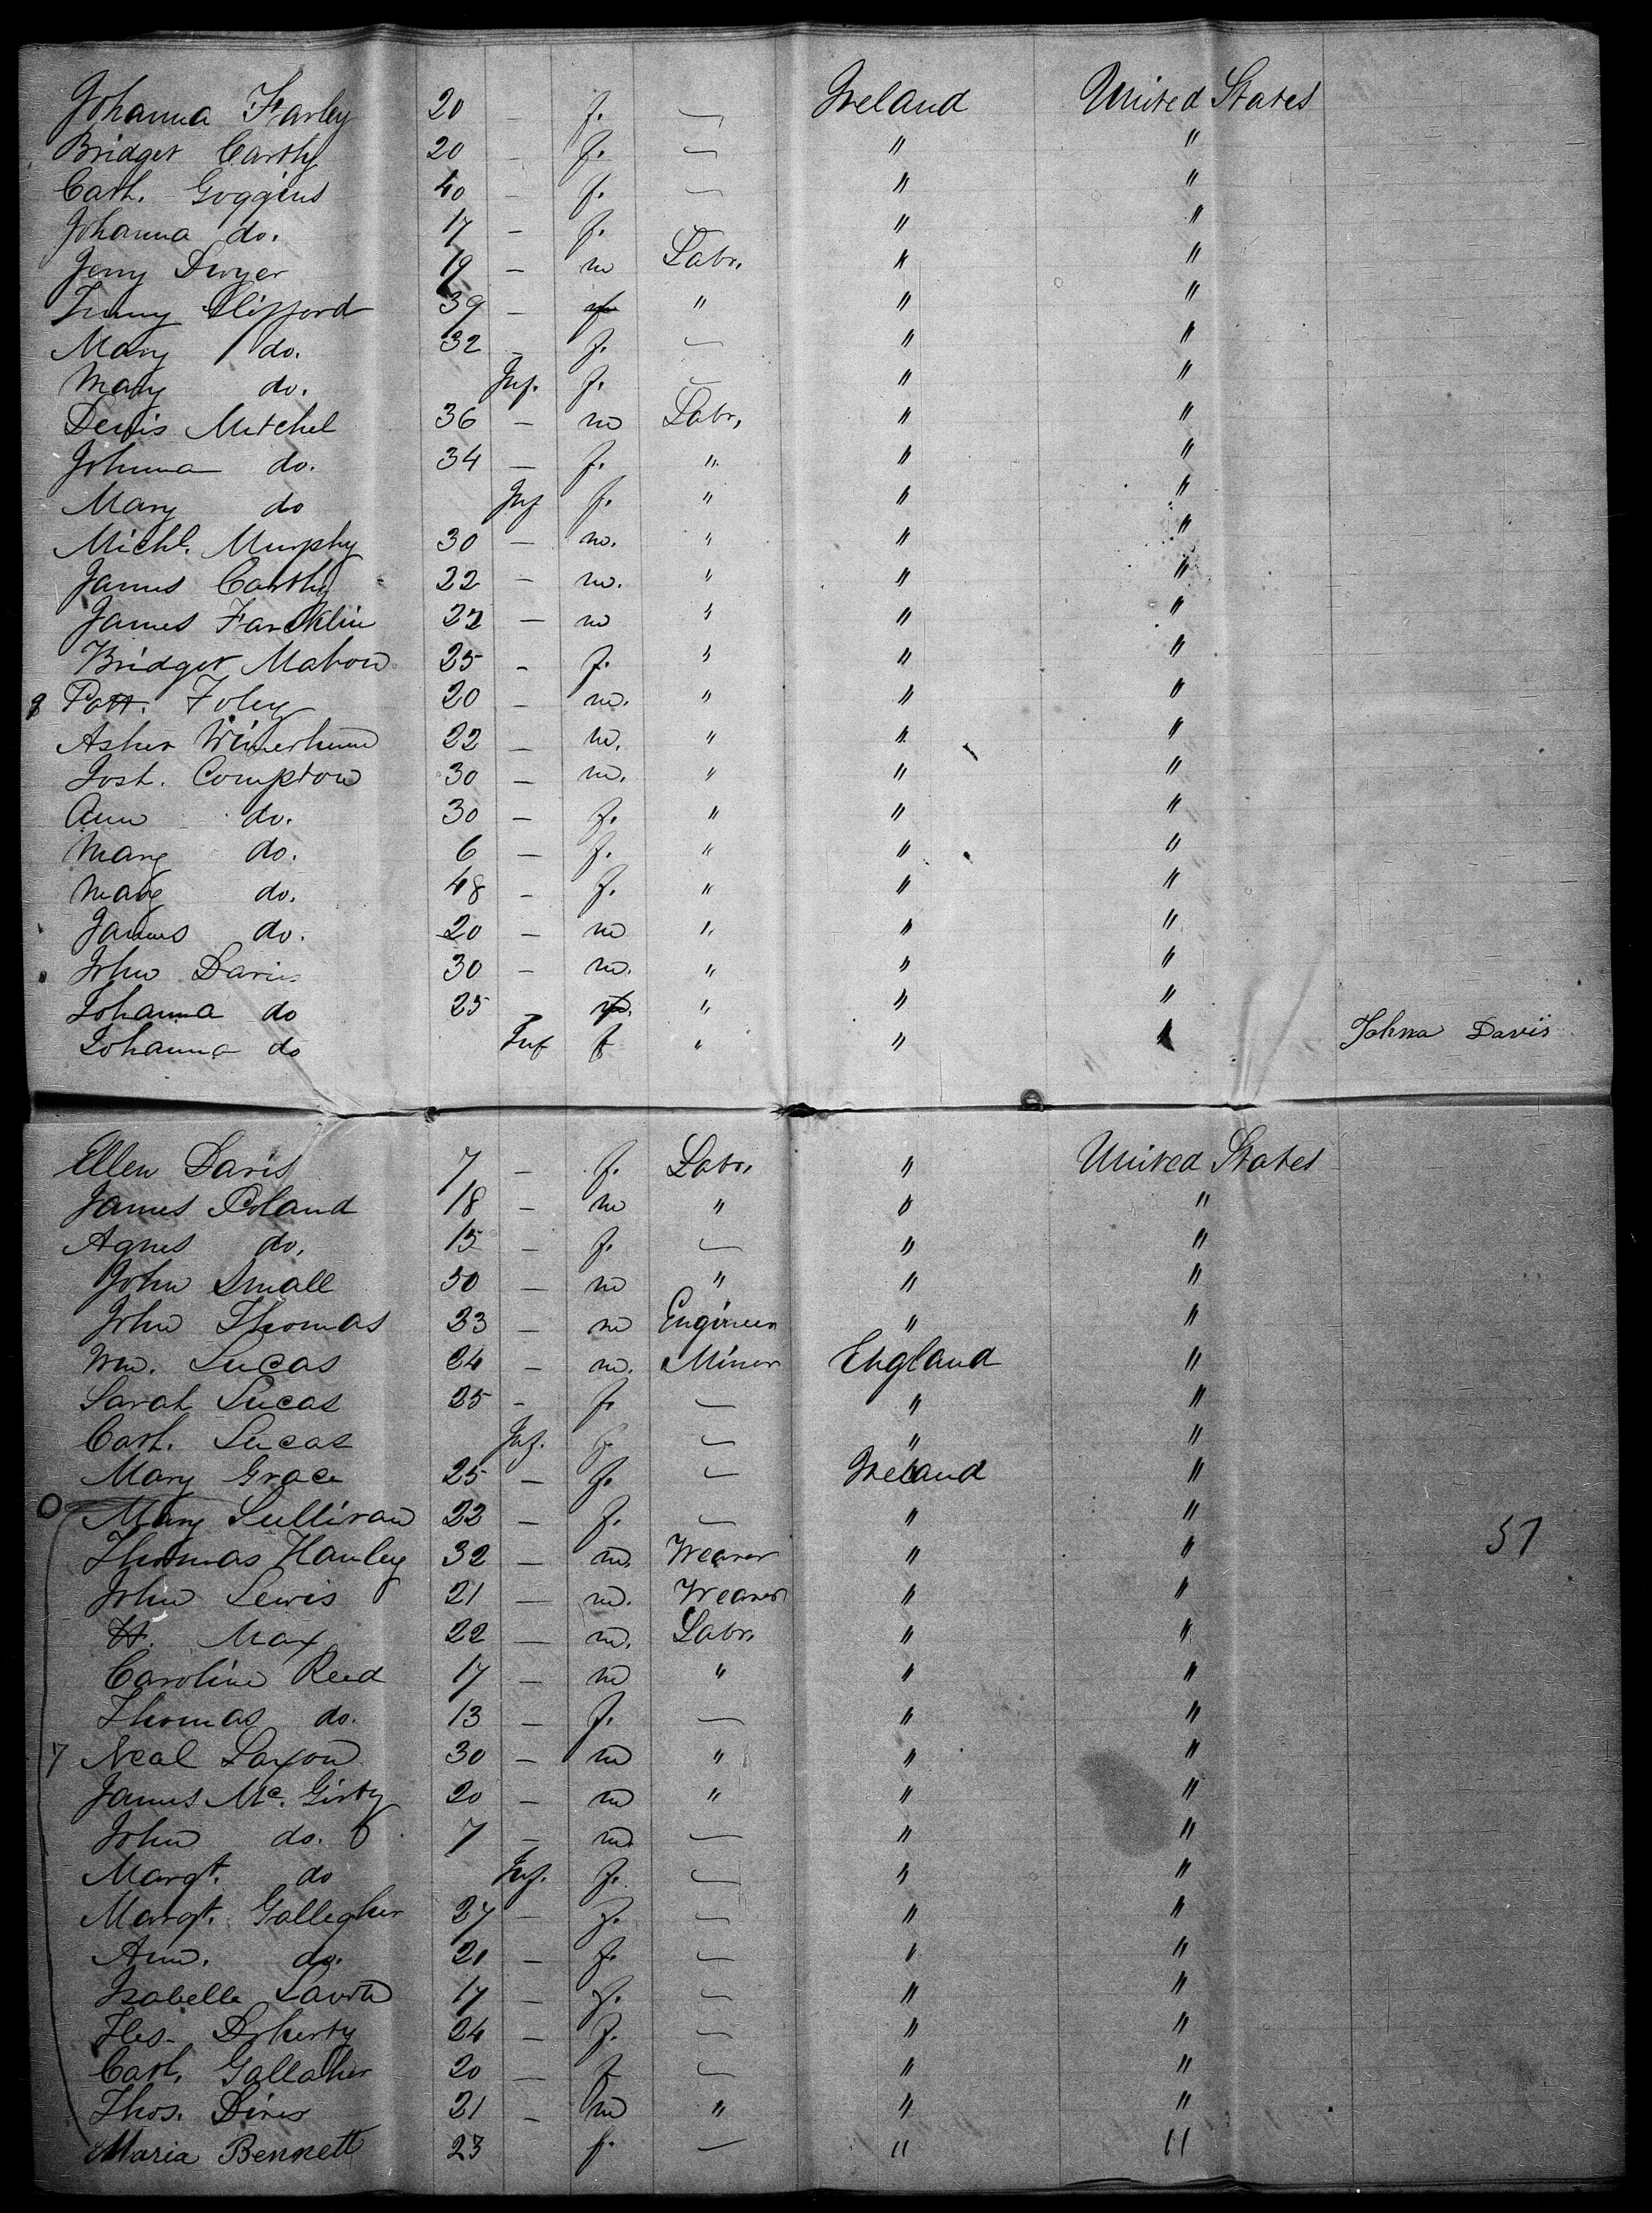 Johanna Farley 20 – f. – Ireland United States
Bridget Carthy 20 – f. – " "
Cath. Goggins 40 – f. – " "
Johanna do. 17 – f. " "
Jerry Dwyer 19 – m Labr. " "
Clifford 39 – " " "
Mary do. 32 – f. – " "
Mary do. Inf. f. – " "
Denis Mitchel 36 – m Labr. " "
Johnna do. 34 – f. " " "
Mary do Inf f. " " "
Michl. Murphy 30 – m. " " "
James Carthy 22 – m. " " "
James 22 – m " " "
Bridget Mahon 25 – f. " " "
Patt. Foley 20 – m. " " "
Asher 22 – m. " " "
Josh. Compton 30 – m. " " "
Ann do. 30 – f. " " "
Mary do. 6 – f. " " "
Mary do. 48 – f. " " "
James do. 20 – m " " "
John Davis 30 – m. " " "
Johanna do 25 – " " "
Johanna do Inf f " " " Johna Davis
Ellen Davis 7 – f. Labr. " United States
James Poland 18 – m " " "
Agnes do. 15 – f. – " "
John Small 50 – m " " "
John Thomas 33 – m Engineer " "
Wm. Lucas 24 – m. Miner England "
Sarah Lucas 25 – f. – " "
Cath. Lucas Inf. f. – " "
Mary Grace 25 – f. – Ireland "
Mary Sullivan 22 – f. – " "
Thomas Hanley 32 – m. Weaver " " 57
John Lewis 21 – m. Weaver " "
H. Max 22 – m. Labr. " "
Caroline Reed 17 – m " " "
Thomas do. 13 – f. – " "
7 Neal Saxon 30 – m " " "
James Mc. Girty 20 – m " " "
John do. 7 – m – " "
Margt. do Inf. f. – " "
Margt. Gallegher 27 – f. – " "
Ann. do. 21 – f. – " "
Isabella 17 – f. – " "
Doherty 24 – f. – " "
Cath. Gallaher 20 – f – " "
Thos. 21 – m " " "
Maria Bennett 23 f. – " "